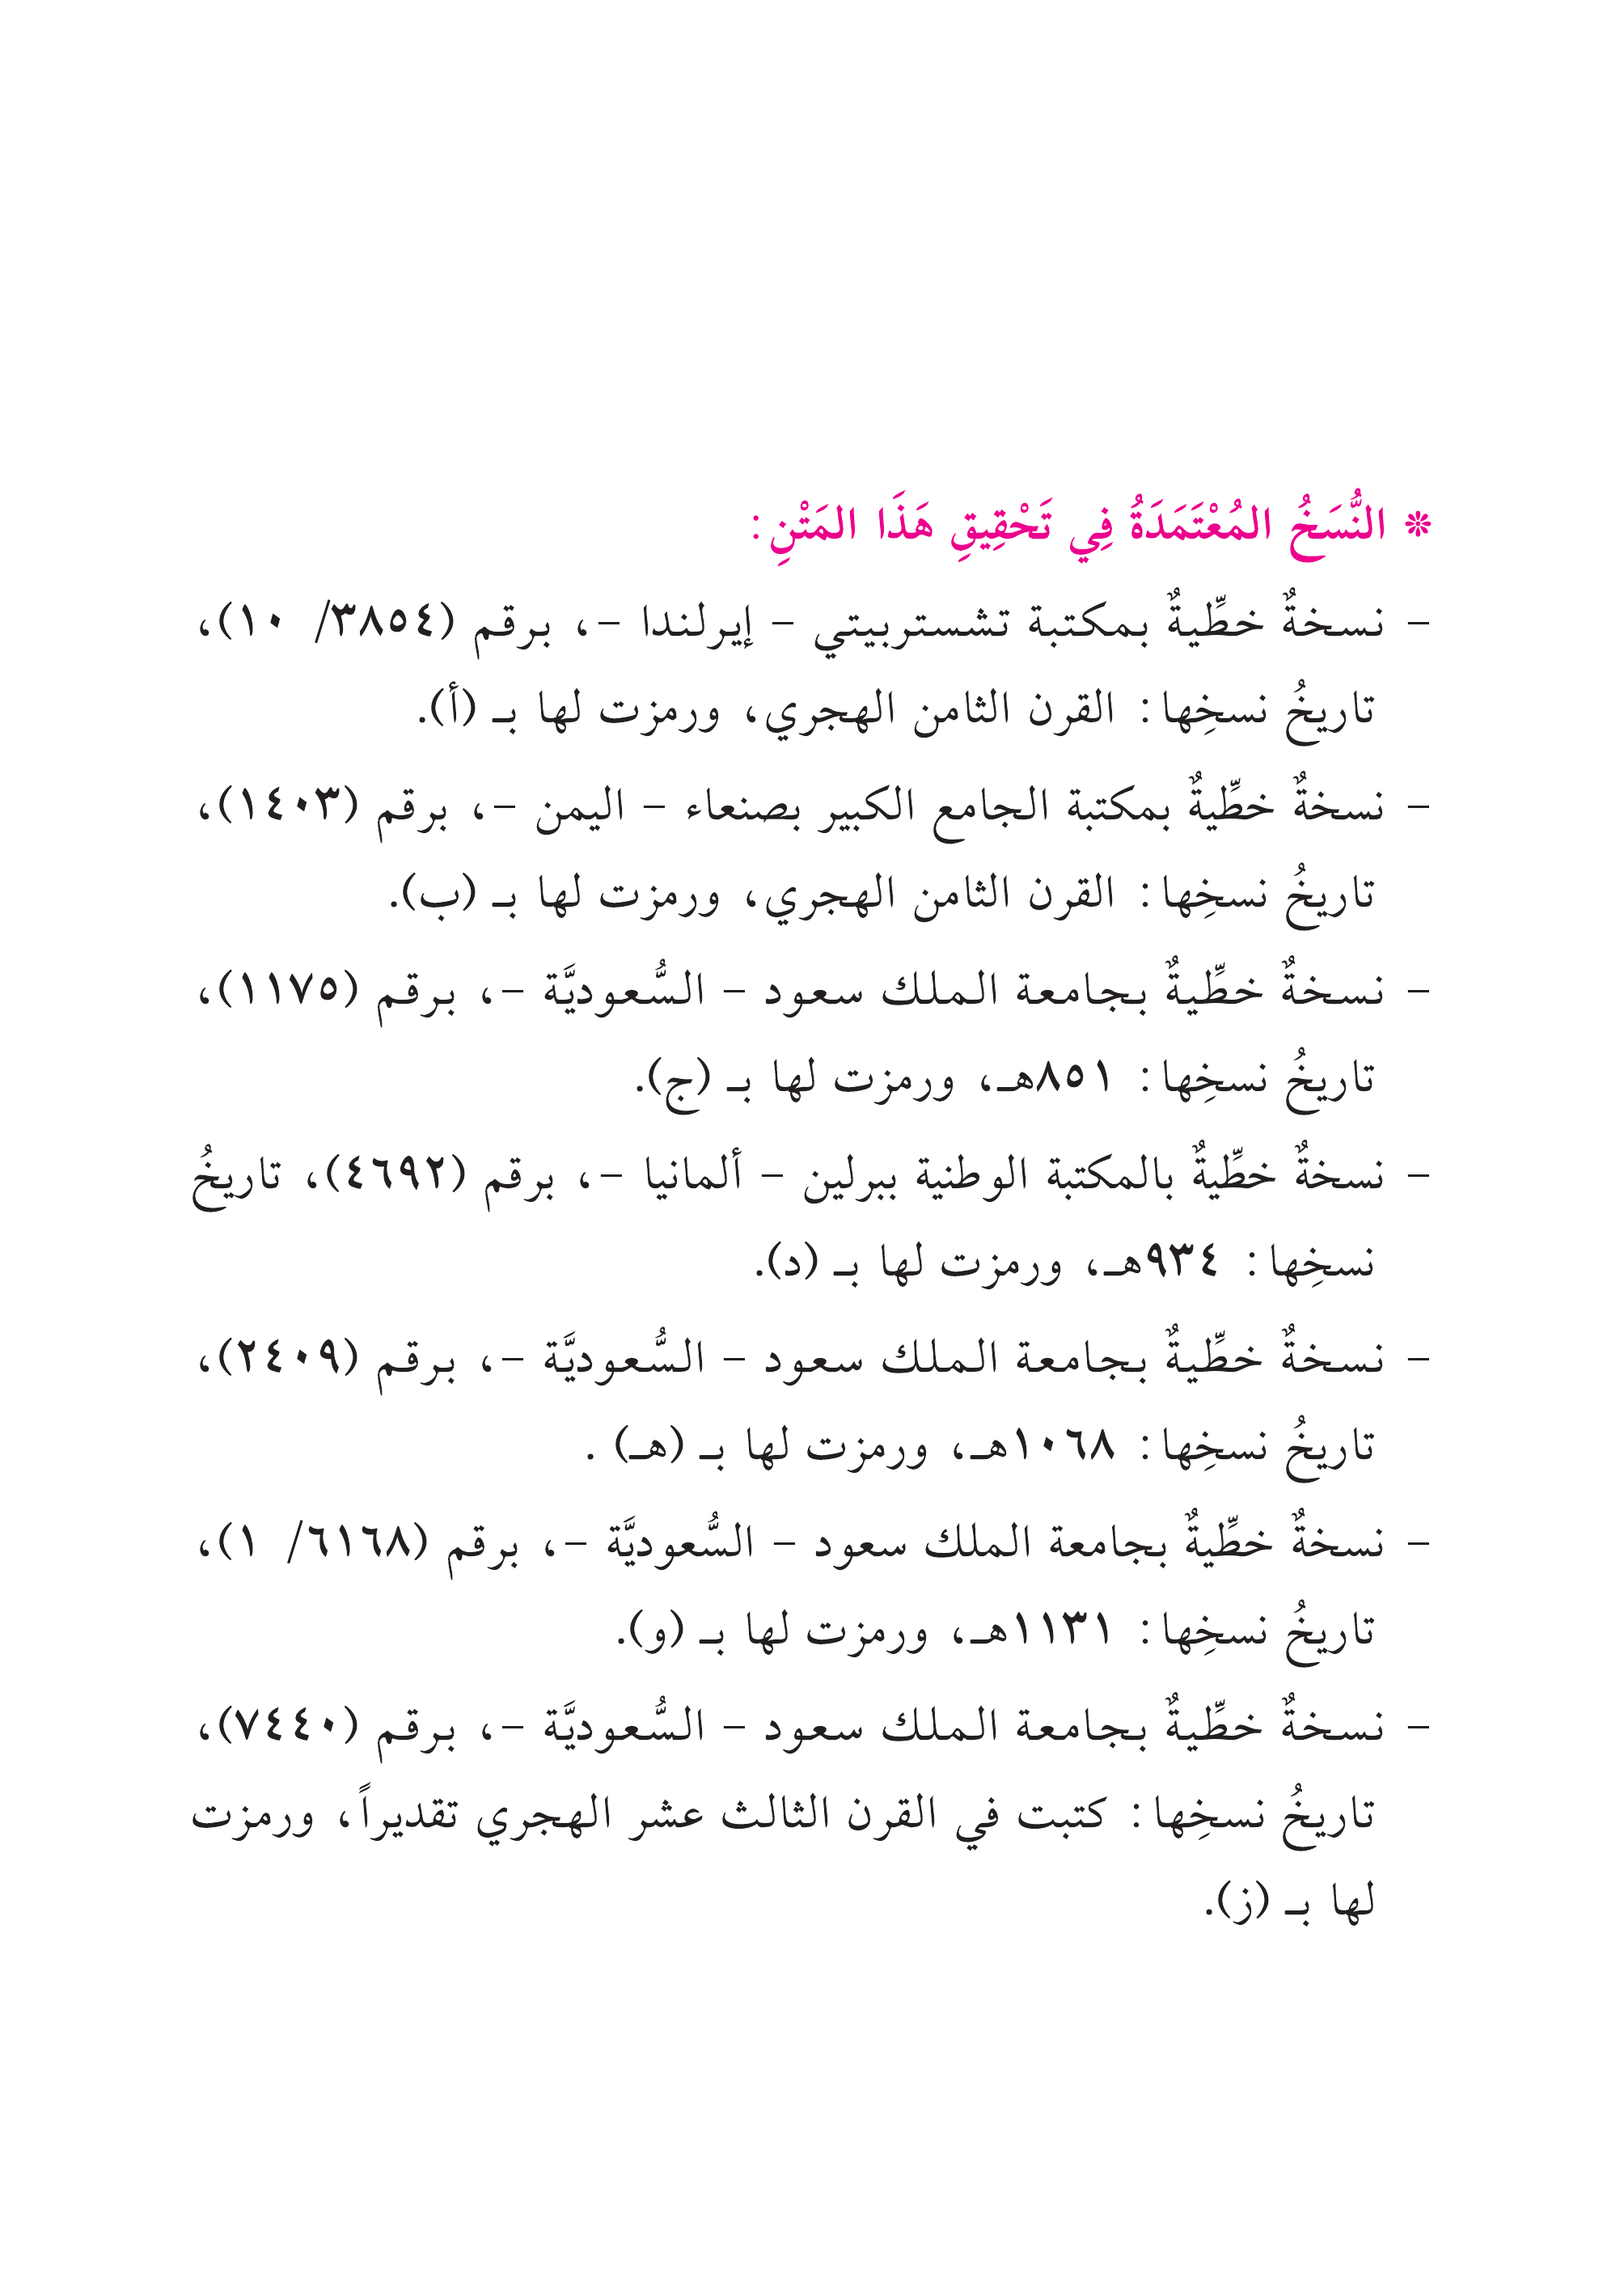 * النُّسَخُ المُعْتَمَدَةُ فِي تَحْقِيقِ هَذَا المَتْنِ:
- نسخةٌ خطِّيةٌ بمكتبة تشستربيتي - إيرلندا -، برقم (٣٨٥٤/ ١٠)،
تاريخُ نسخِها: القرن الثامن الهجري، ورمزت لها بـ (أ).
- نسخةٌ خطِّيةٌ بمكتبة الجامع الكبير بصنعاء - اليمن -، برقم (١٤٠٣)،
تاريخُ نسخِها: القرن الثامن الهجري، ورمزت لها بـ (ب).
- نسخةٌ خطِّيةٌ بجامعة الملك سعود - السُّعوديَّة -، برقم (١١٧٥)،
تاريخُ نسخِها: ٨٥١هـ، ورمزت لها بـ (ج).
- نسخةٌ خطِّيةٌ بالمكتبة الوطنية ببرلين - ألمانيا -، برقم (٤٦٩٢)، تاريخُ
نسخِها: ٩٣٤هـ، ورمزت لها بـ (د).
- نسخةٌ خطِّيةٌ بجامعة الملك سعود - السُّعوديَّة -، برقم (٢٤٠٩)،
تاريخُ نسخِها: ١٠٦٨هـ، ورمزت لها بـ (هـ) .
- نسخةٌ خطِّيةٌ بجامعة الملك سعود - السُّعوديَّة -، برقم (٦١٦٨/ ١)،
تاريخُ نسخِها: ١١٣١هـ، ورمزت لها بـ (و).
- نسخةٌ خطِّيةٌ بجامعة الملك سعود - السُّعوديَّة -، برقم (٧٤٤٠)،
تاريخُ نسخِها: كتبت في القرن الثالث عشر الهجري تقديراً، ورمزت
لها بـ (ز).